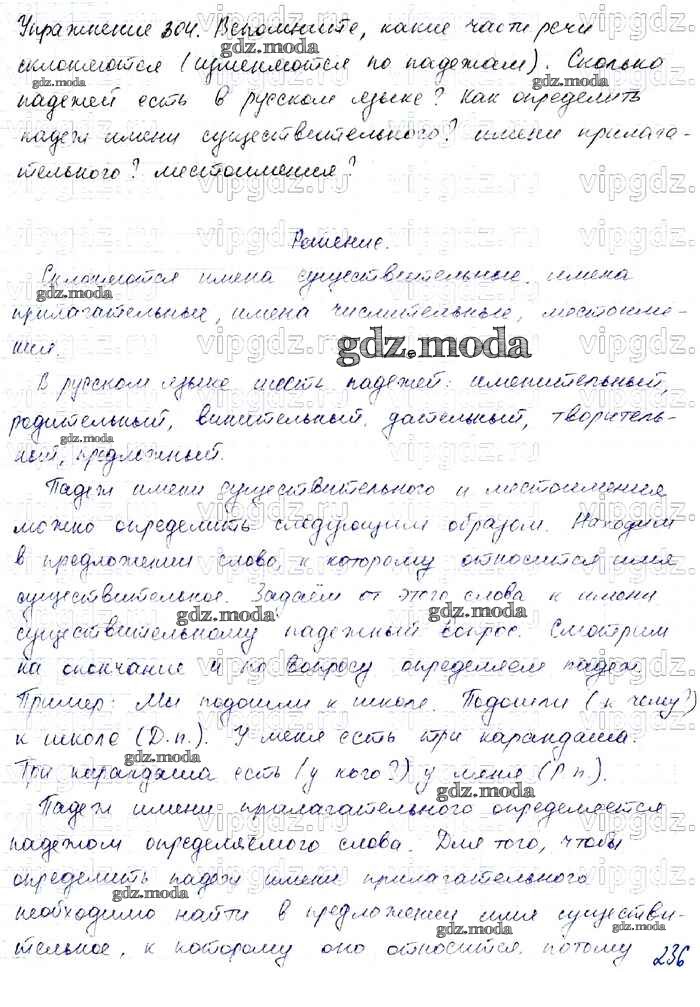 Упражнение 304. Вспомните, какие части речи
склоняются (изменяются по падежам). Сколько
падежей есть в русском языке? Как определить
падеж имени существительного? имени прилага-
тельного? местоимения?
Решение.
Склоняются имена существительные, имена
прилагательные, имена числительные, местоиме-
ния.
В русском языке шесть падежей: именительный,
родительный, винительный, дательный, творитель-
ный, предложный.
Падеж имени существительного и местоимения
можно определить следующим образом. Находим
в предложении слово, к которому относится имя
существительное. Задаём от этого слова к имени
существительному падежный вопрос. Смотрим
на окончание и по вопросу определяем падеж.
Пример: Мы подошли к школе. Подошли (к чему?)
к школе (Д.п.). У меня есть три карандаша.
Три карандаша есть (у кого?) у меня (Р.п.).
Падеж имени прилагательного определяется
падежом определяемого слова. Для того, чтобы
определить падеж имени прилагательного
необходимо найти в предложении имя существи-
тельное, к которому оно относится, потому
236
gdz.moda
vipgdz.ru